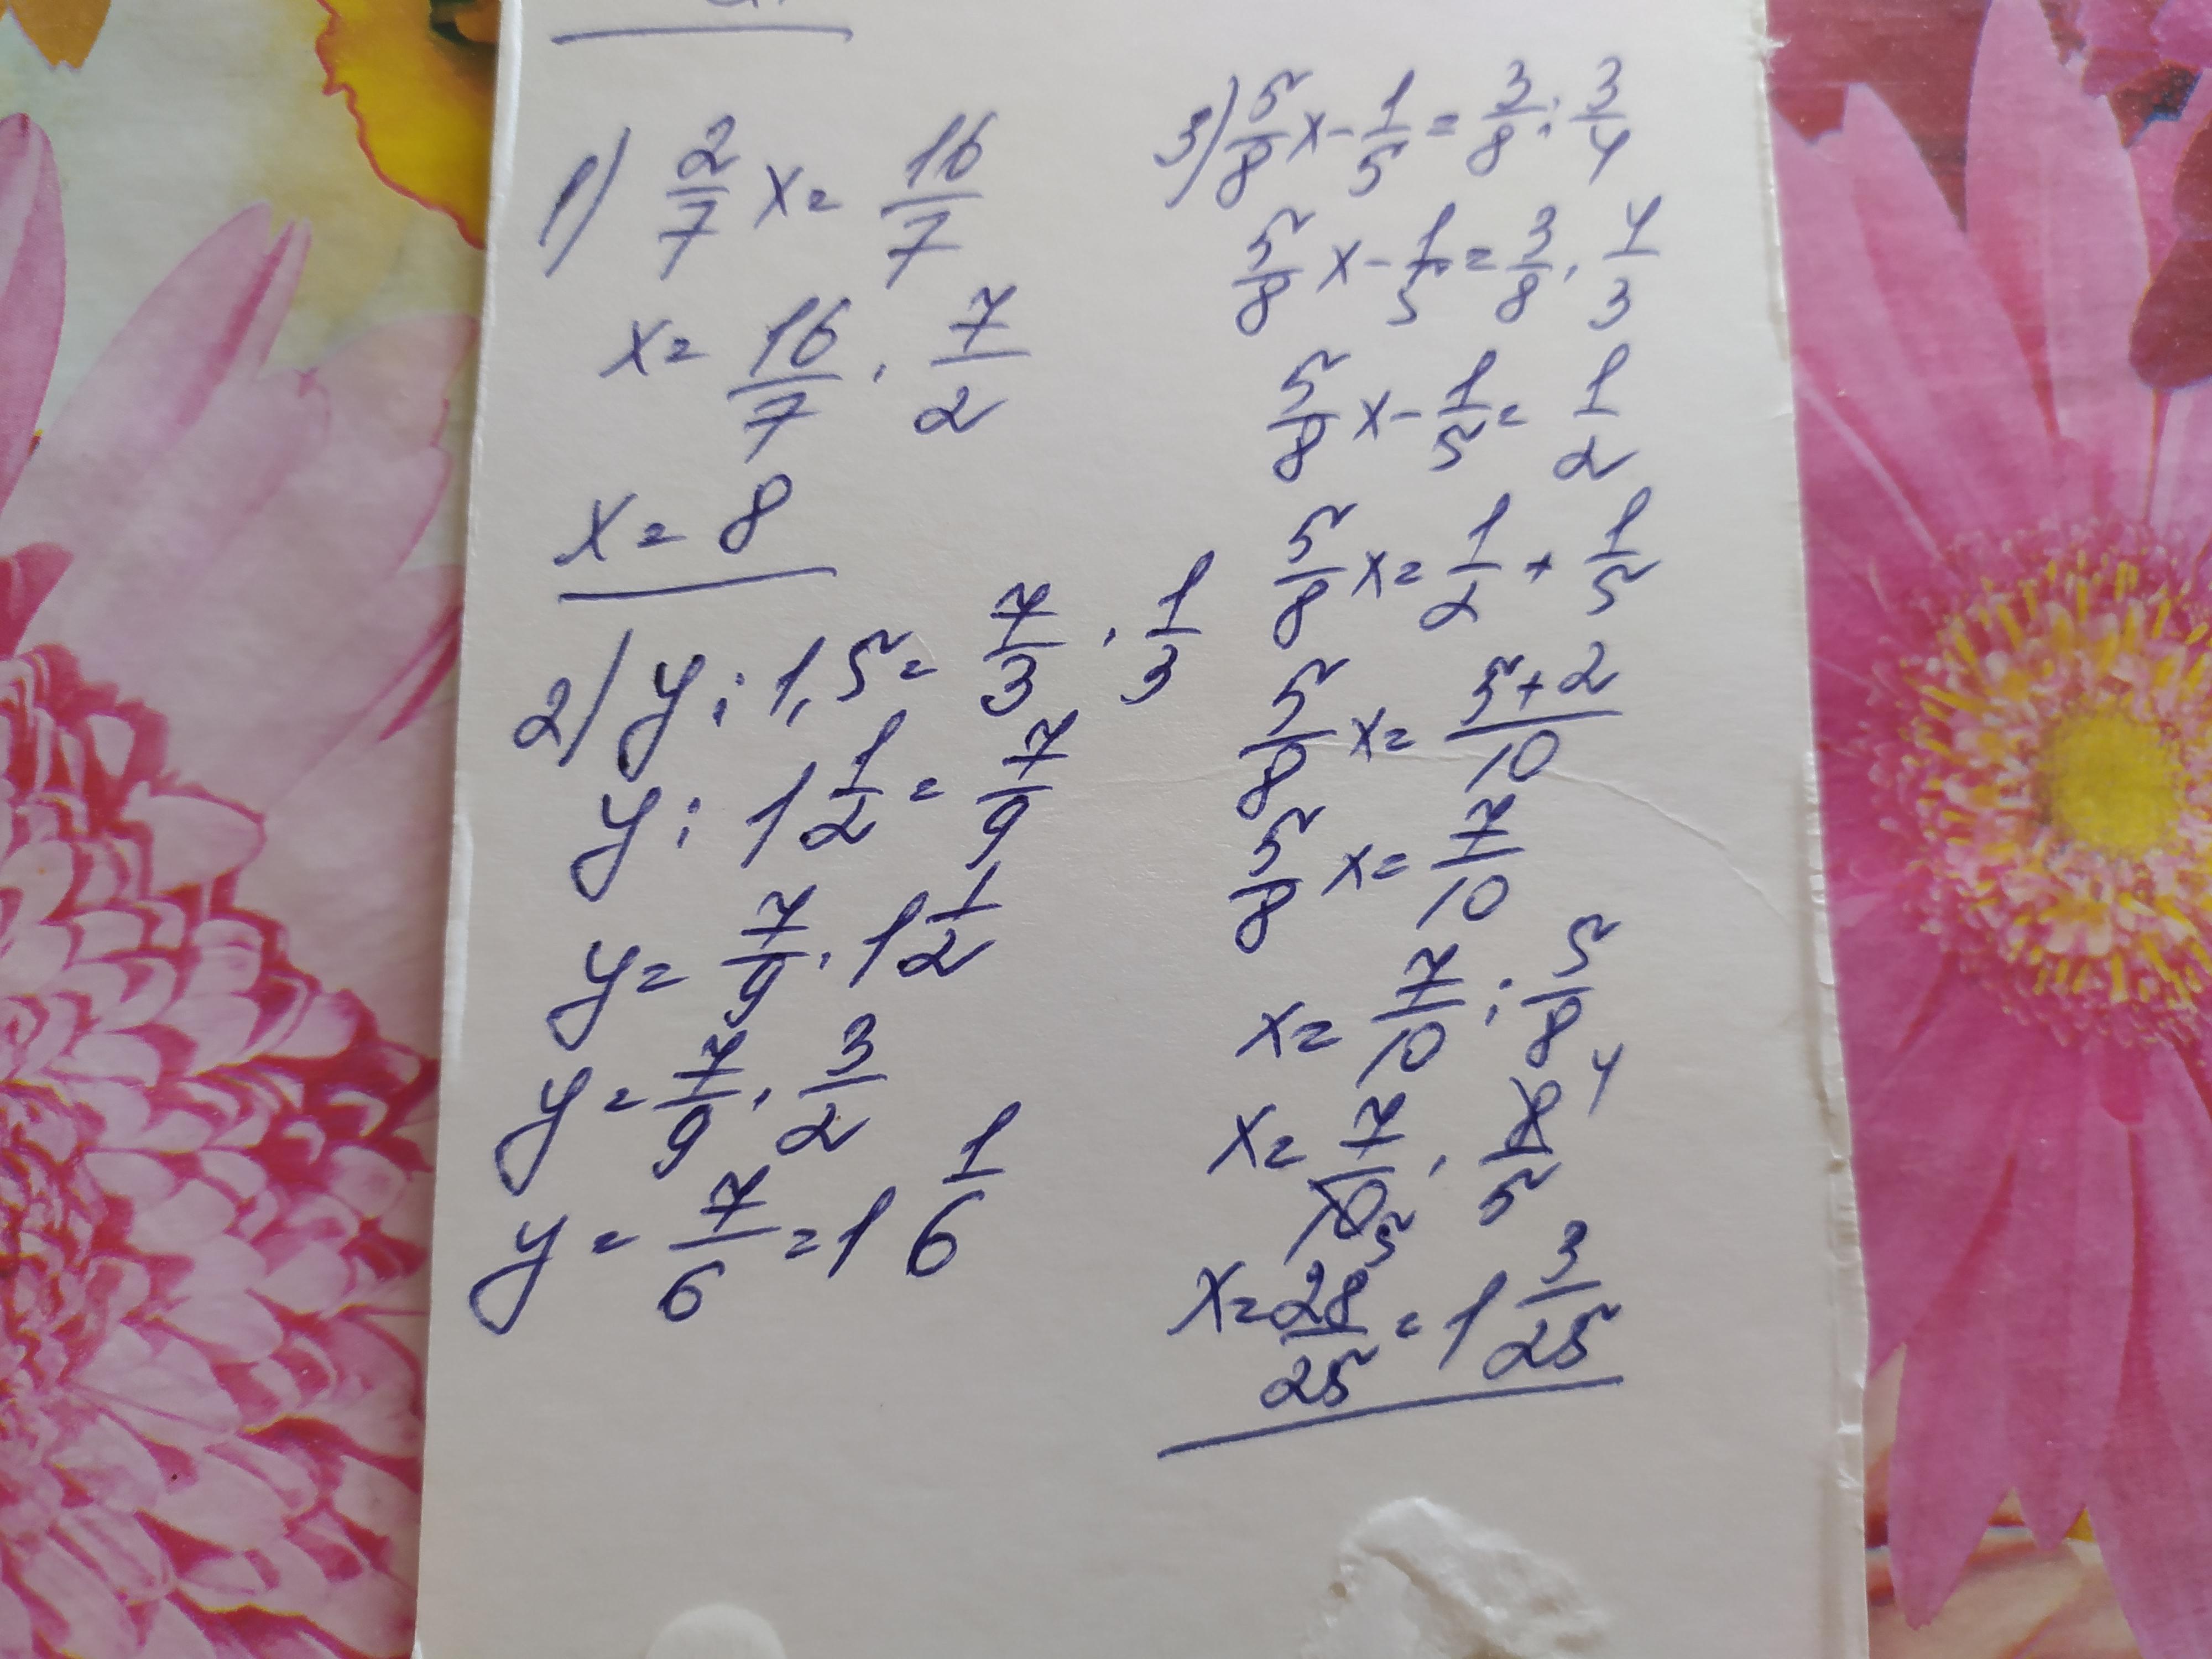 1) 2/7 x = 16/7
x = 16/7 · 7/2
x = 8
2) y : 1,5 = 7/3 · 1/3
y : 1 1/2 = 7/9
y = 7/9 · 1 1/2
y = 7/9 · 3/2
y = 7/6 = 1 1/6
3) 5/8 x - 1/5 = 3/8 : 3/4
5/8 x - 1/5 = 3/8 · 4/3
5/8 x - 1/5 = 1/2
5/8 x = 1/2 + 1/5
5/8 x = 5+2/10
5/8 x = 7/10
x = 7/10 : 5/8
x = 7/10 5 · 8 4/5
x = 28/25 = 1 3/25